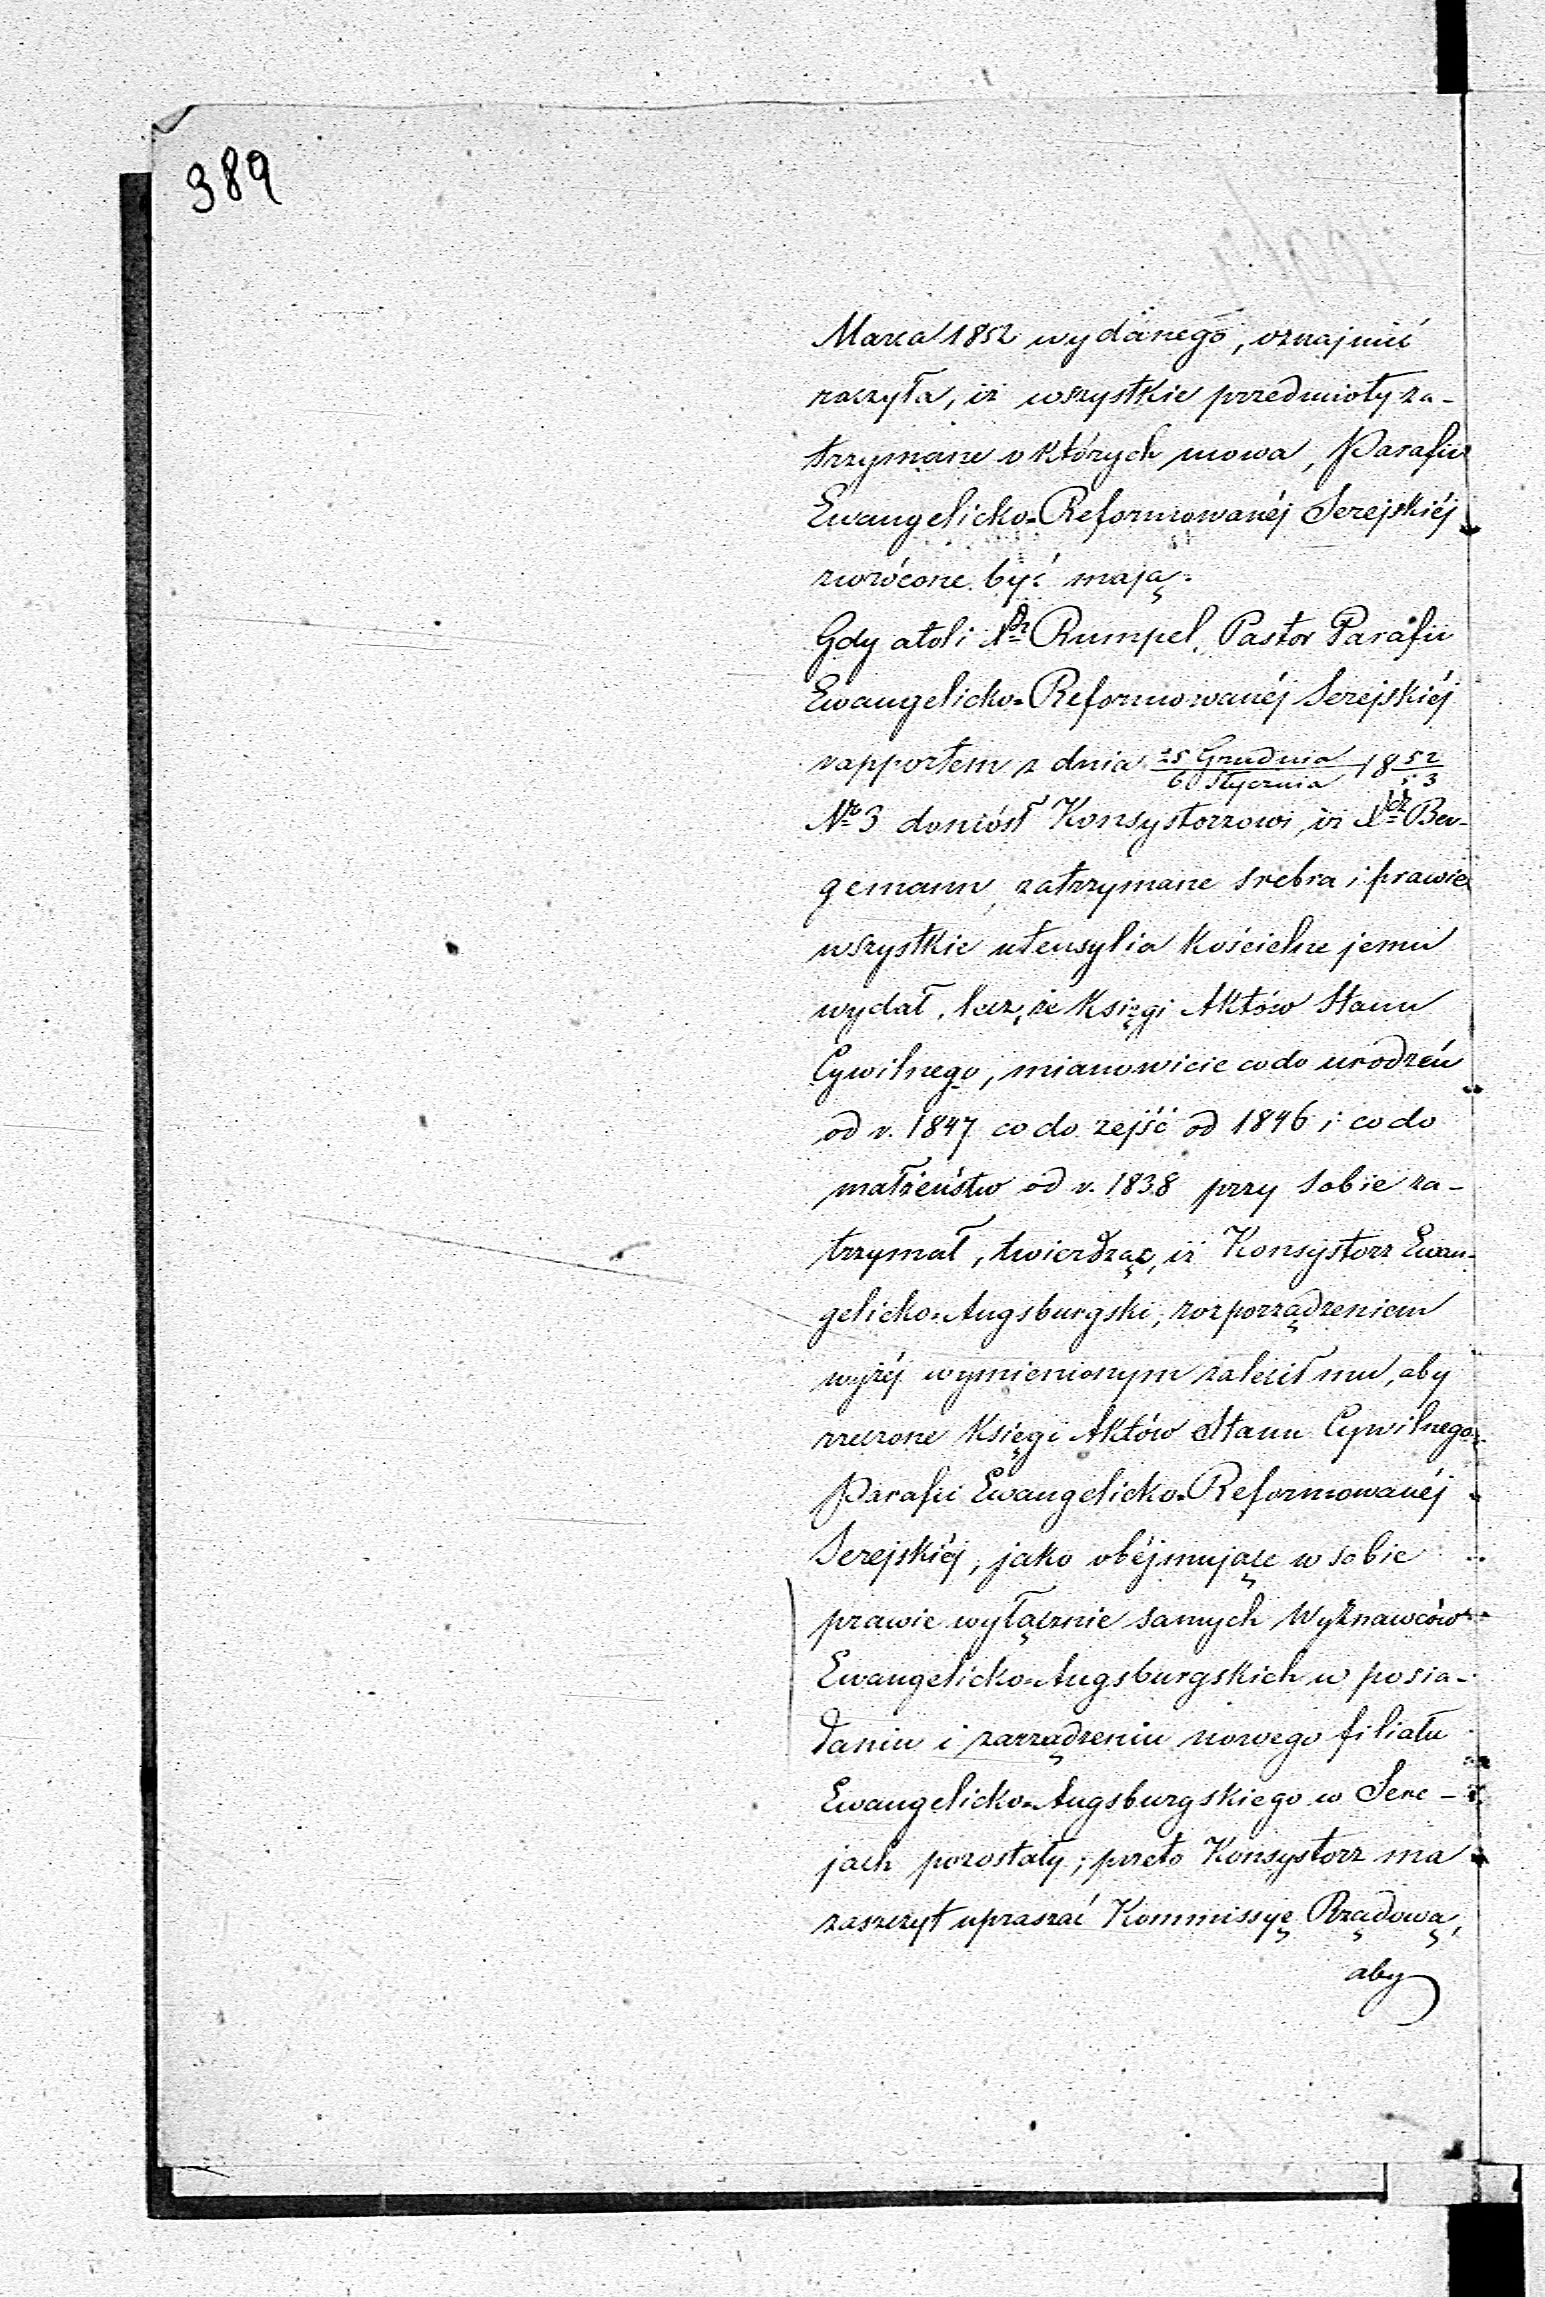 389
Marca 1852 wydanego, oznajmić
raczyła, iż wszystkie przedmioty za-
trzymane o których mowa, Parafii
Ewangelicko-Reformowanéj Serejskiéj
zwrócone być mają.
Gdy atoli Xdz Rumpel, Pastor Parafii
Ewangelicko-Reformowanéj Serejskiéj
rapportem z dnia 25 Grudnia/6 Stycznia 1852/53
No 3 doniósł Konsystorzowi, iż Xdz Ber-
gemann, zatrzymane srebra i prawie
wszystkie utensylia Kościelne jemu
wydał, lecz, że Księgi Aktów Stanu
Cywilnego, mianowicie co do urodzeń
od r. 1847 co do zejść od 1846 i co do
małżeństw od r. 1838 przy sobie za-
trzymał, twierdząc, iż Konsystorz Ewan-
gelicko-Augsburgski, rozporządzeniem
wyżéj wymienionym zalecił mu, aby
rzeczone Księgi Aktów Stanu Cywilnego
Parafii Ewangelicko-Reformowanéj
Serejskiéj, jako obéjmujące w sobie
prawie wyłącznie samych Wyznawców
Ewangelicko-Augsburgskich w posia-
daniu i zarządzeniu nowego filiału
Ewangelicko-Augsburgskiego w Sere-
jach pozostały; przeto Konsystorz ma
zaszczyt upraszać Kommissyę Rządową,
aby